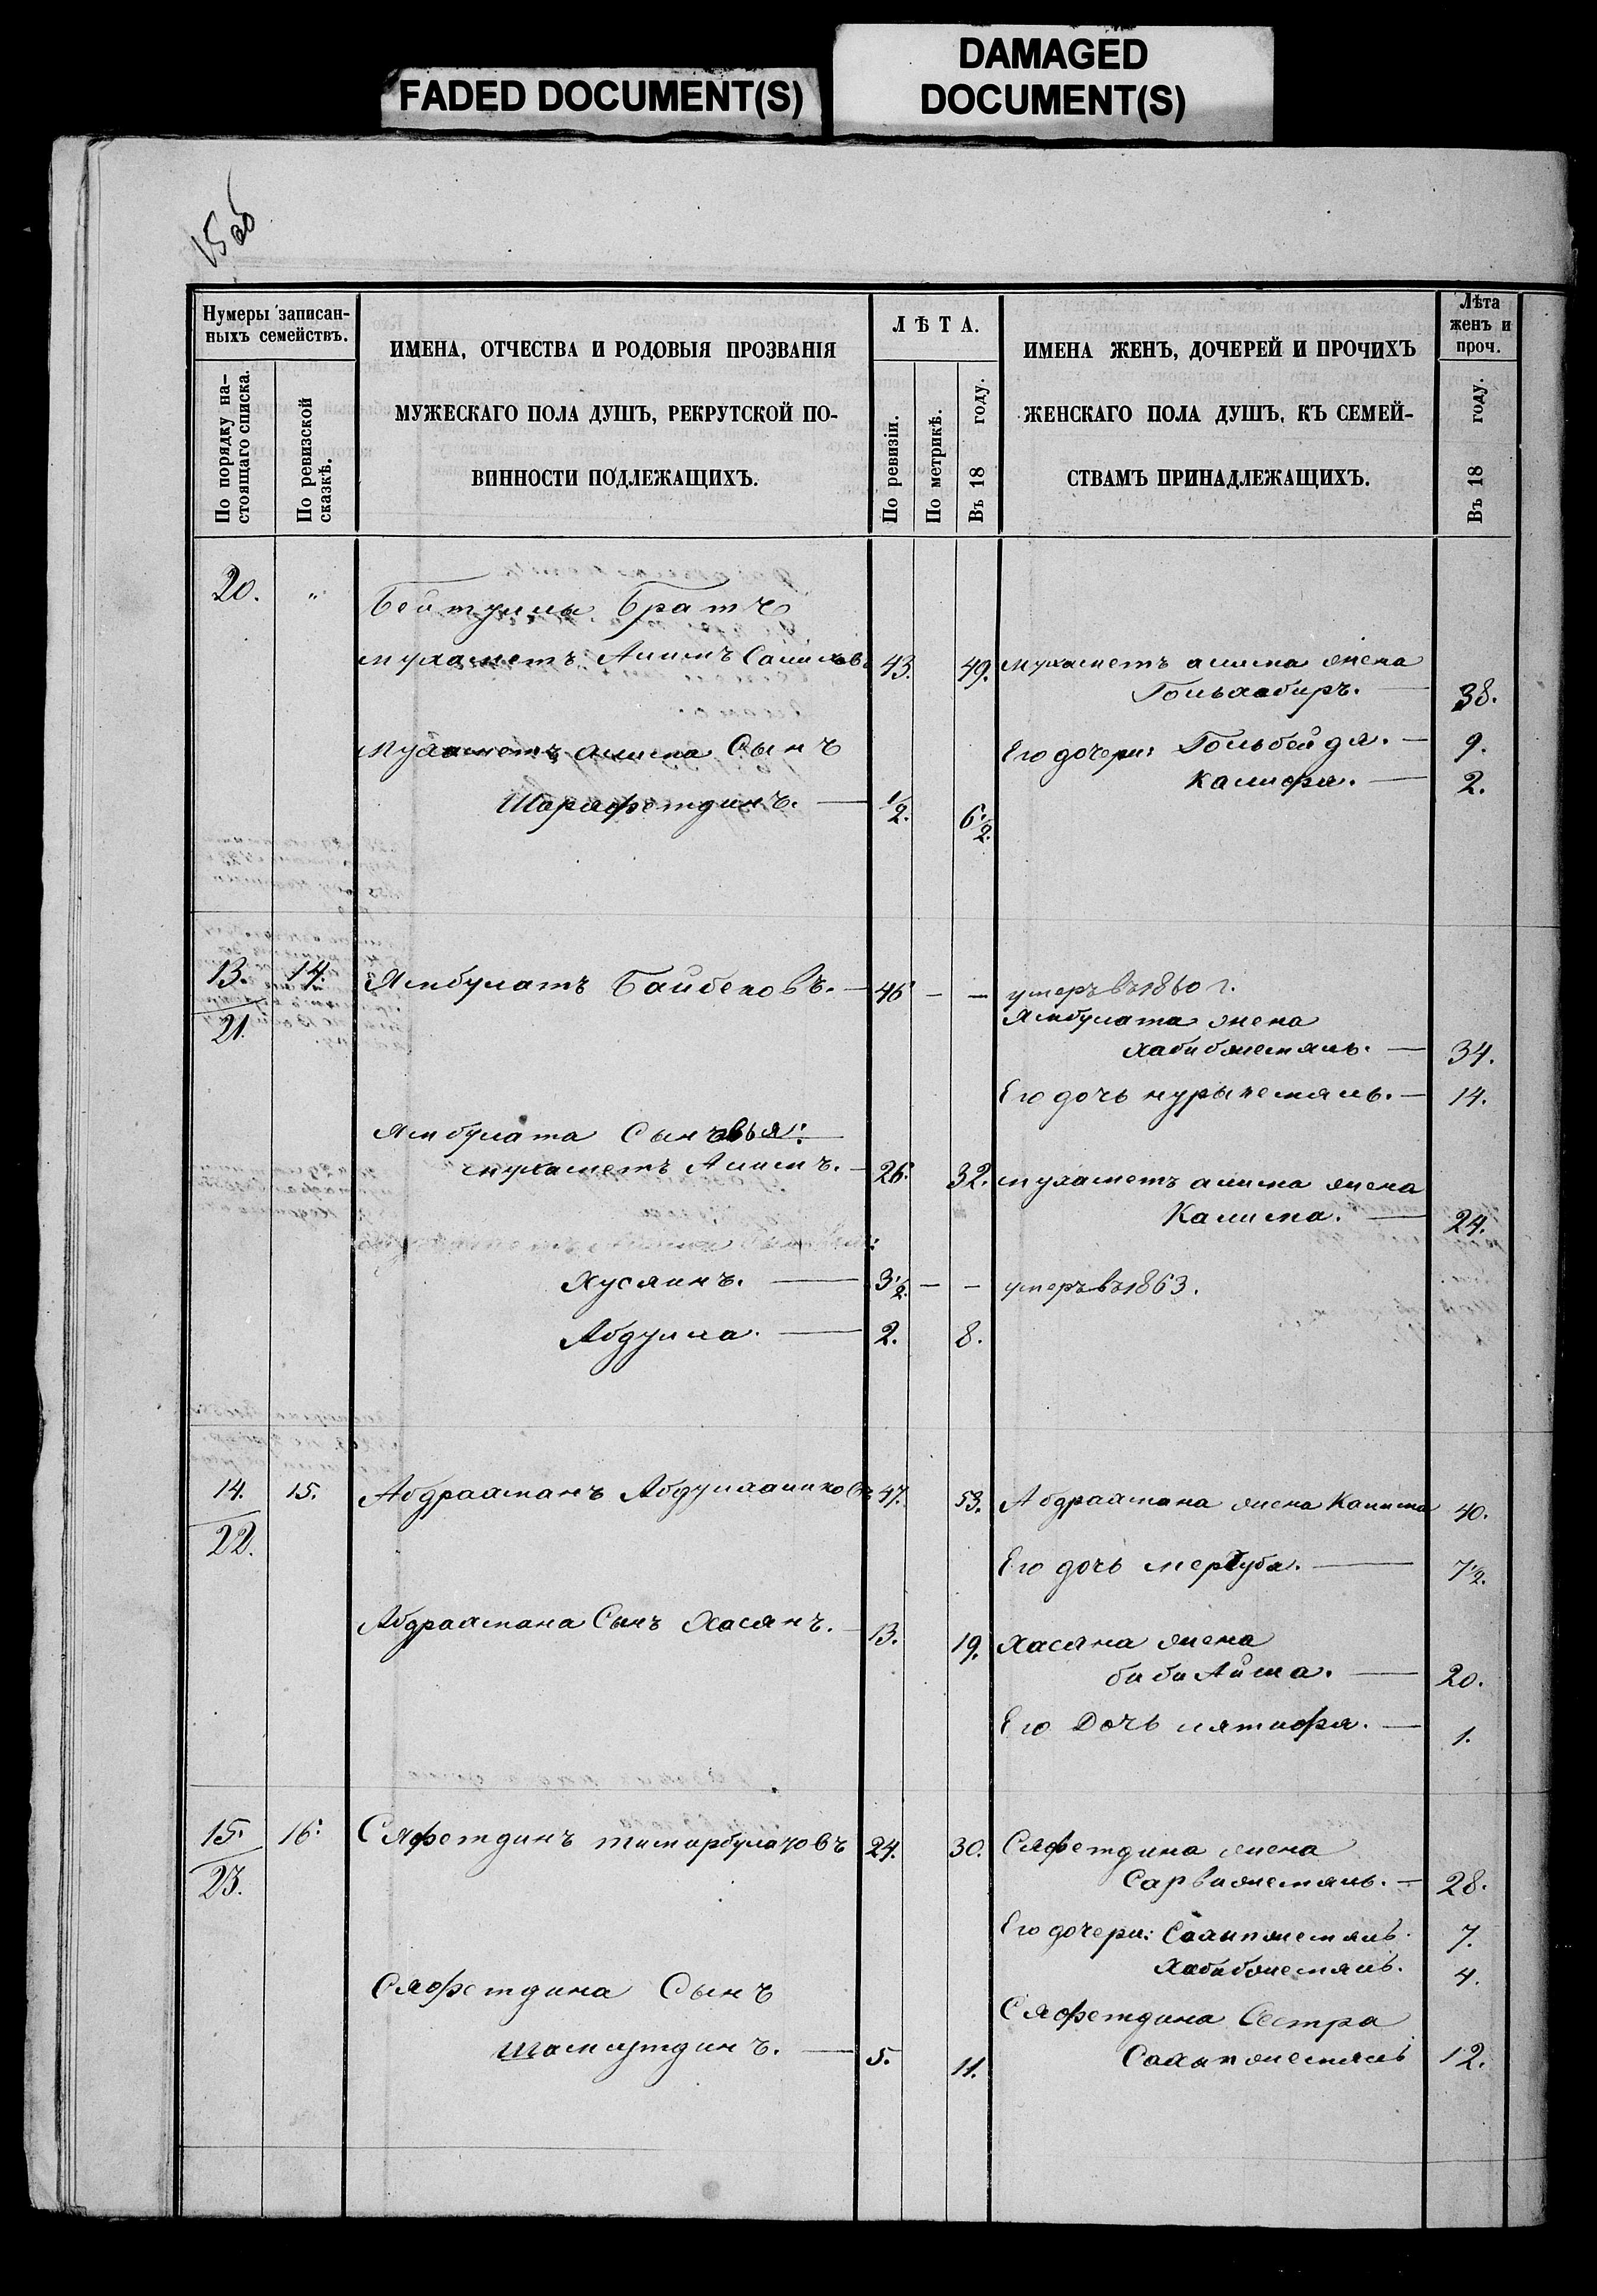 FADED DOCUMENT(S)
DAMAGED
DOCUMENT(S)
15 об
Нумеры записан-
ныхъ семействъ.
По порядку на-
стоящаго списка.
По ревизской
сказкѣ.
ИМЕНА, ОТЧЕСТВА И РОДОВЫЯ ПРОЗВАНІЯ
МУЖЕСКАГО ПОЛА ДУШЪ, РЕКРУТСКОЙ ПО-
ВИННОСТИ ПОДЛЕЖАЩИХЪ.
ЛѢТА.
По ревизіи.
По метрикѣ.
Въ 18 году.
ИМЕНА ЖЕНЪ, ДОЧЕРЕЙ И ПРОЧИХЪ
ЖЕНСКАГО ПОЛА ДУШЪ, КЪ СЕМЕЙ-
СТВАМЪ ПРИНАДЛЕЖАЩИХЪ.
Лѣта
женъ и
проч.
Въ 18 году.
20. „ Бейтуллы Братъ
мухаметъ Алимъ Салиховъ 43. 49. мухаметъ алима жена
Гольхабиръ. — 38.
Мухаметъ алима Сынъ
Его дочери: Гольбейда. — 9.
Камифа. — 2.
Шарафетдинъ. — 1/2. 6 1/2.
13. 14. Ямбулатъ Байбековъ. — 46 — — умеръ въ 1860 г.
21.
Ямбулата жена
Хабибжемаль. — 34.
Его дочь нурыжемяль. — 14.
Ямбулата Сыновья:
мухаметъ Алимъ. — 26. 32. мухаметъ алима жена
Калима. — 24.
Хусяинъ. — 3 1/2. — — умеръ въ 1863.
Абдулла. — 2. 8.
14. 15. Абдрахманъ Абдулхаликовъ 47. 53. Абдрахмана жена Калима 40.
22.
Его дочь мергуба. — 7 1/2.
Абдрахмана Сынъ Хасянъ. — 13. 19. Хасяна жена
биби Айша. — 20.
Его Дочь лятифа. — 1.
15. 16. Сяфетдинъ тимарбулатовъ 24. 30. Сяфетдина жена
23.
Сарвижемяль. — 28.
Его дочери: Сахипжемяль. 7.
Хабибжемяль. 4.
Сяфетдина Сынъ
Сяфетдина Сестра
шамсутдинъ. — 5. 11. Сахипжемяль 12.